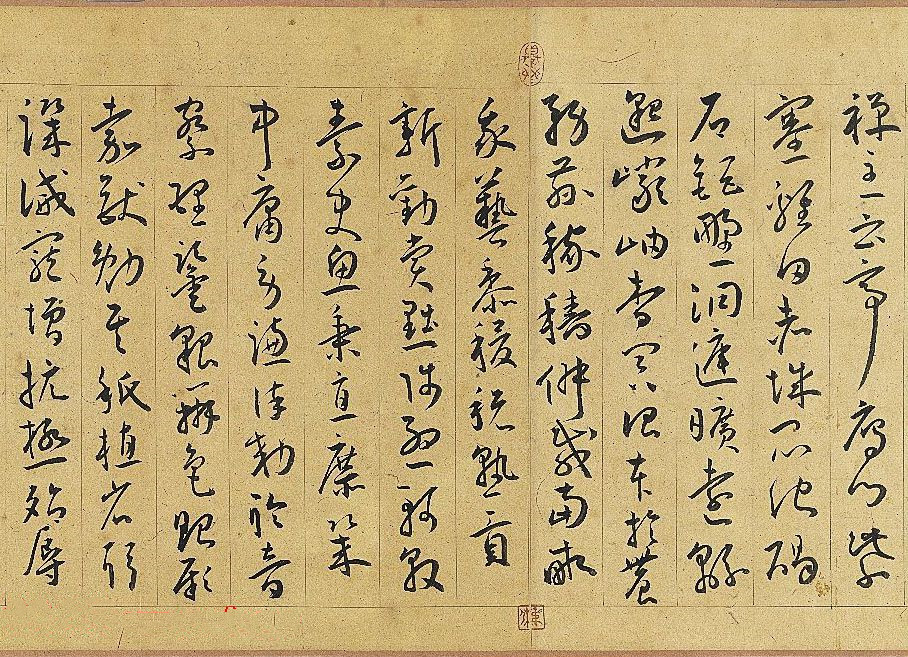 禪主云亭鴈門紫
塞雞田赤城昆池碣
石鉅野洞庭曠遠緜
邈巖岫杳冥治本於農
務茲稼穡俶載南畝
我藝黍稷稅熟貢
新勸賞黜陟孟軻敦
素史魚秉直庶幾
中庸勞謙謹勅聆音
察理鑒貌辨色貽厥
嘉猷勉其祗植省躬
譏誡寵增抗極殆辱